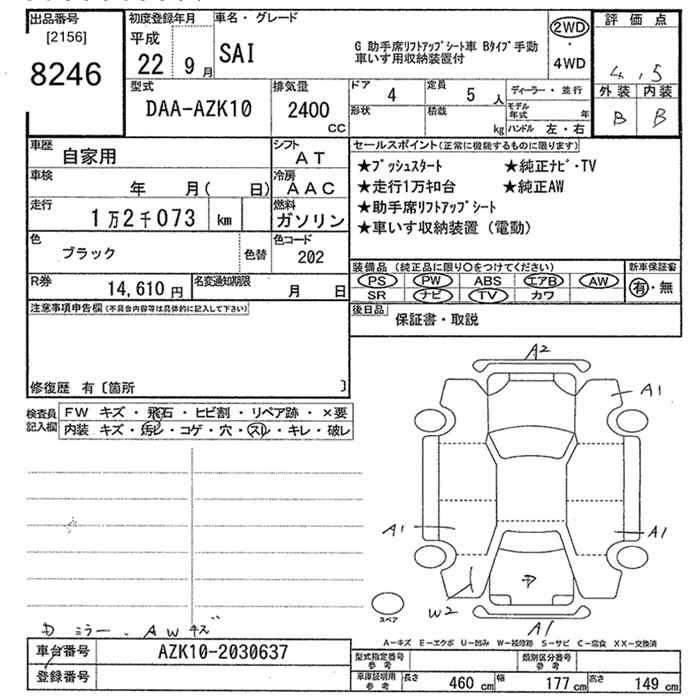 出品番号
[2156]
8246
初度登録年月
平成
22 9月
車名・グレード
SAI
G 助手席リフトアップシート車 Bタイプ手動
車いす用収納装置付
2WD
・
4WD
評価点
4.5
外装 内装
B B
型式
DAA-AZK10
排気量
2400
CC
ドア 4
定員 5 人
ディーラー・並行
形状
積載 kg
モデル年式 年
ハンドル 左・右
車歴
自家用
シフト
AT
車検
年 月( 日)
冷房
AAC
走行
1万2千073 km
燃料
ガソリン
色
ブラック
色替
色コード
202
R券
14,610 円
名変通知期限
月 日
セールスポイント(正常に機能するものに限ります)
★プッシュスタート ★純正ナビ・TV
★走行1万キロ台 ★純正AW
★助手席リフトアップシート
★車いす収納装置(電動)
装備品 (純正品に限り○をつけてください)
新車保証書
PS PW ABS エアB AW
SR ナビ TV カワ
有・無
後日品
保証書・取説
注意事項申告欄(不具合内容等は具体的に記入して下さい)
修復歴 有〔箇所 〕
検査員
記入欄
FW キズ・飛石・ヒビ割・リペア跡・×要
内装 キズ・汚レ・コゲ・穴・スレ・キレ・破レ
A2
A1
A1
A1
W2
A1
スペア
ミラー. AWキズ
A-キズ E-エクボ U-凹み W-補修跡 S-サビ C-腐食 XX-交換済
車台番号
AZK10-2030637
登録番号
型式指定番号
参考
類別区分番号
参考
車庫証明用
参考
長さ 460 cm 幅 177 cm 高さ 149 cm